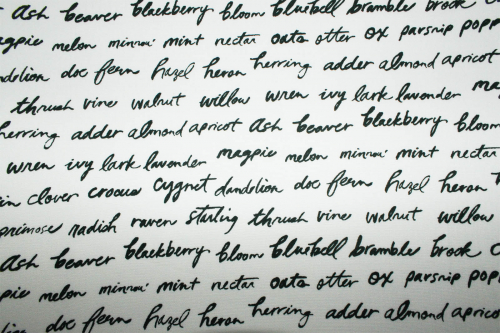 Ash beaver blackberry bloom bluebell bramble brook
magpie melon minnow mint nectar oats otter ox parsnip
dandelion doe fern hazel heron herring adder almond apricot
thrush vine walnut willow wren ivy lark lavender
herring adder almond apricot Ash beaver blackberry bloom
wren ivy lark lavender magpie melon minnow mint nectar
clover crocus cygnet dandelion doe fern hazel heron
primrose radish raven starling thrush vine walnut willow
Ash beaver blackberry bloom bluebell bramble brook
melon minnow mint nectar oats otter ox parsnip
doe fern hazel heron herring adder almond